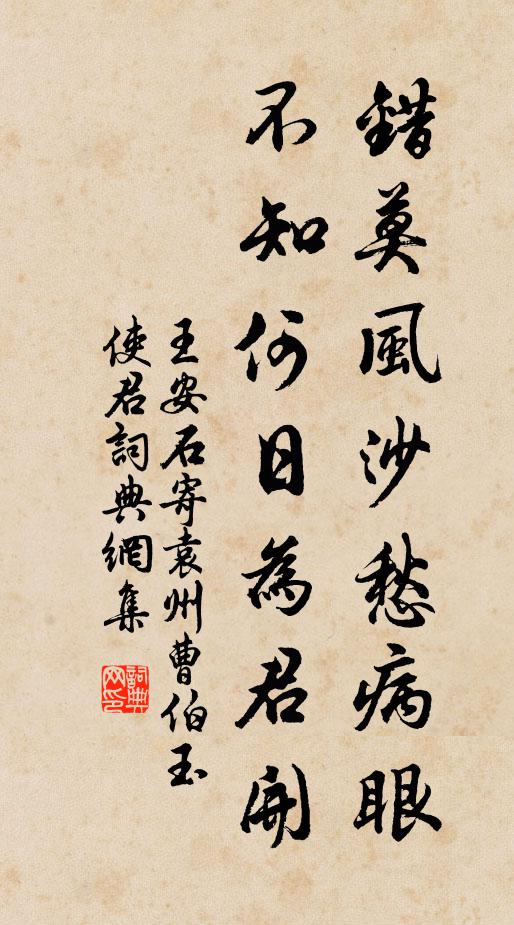 錯莫風沙愁病眼
不知何日為君開
王安石寄袁州曹伯玉
使君詞典網集
詞典
网印